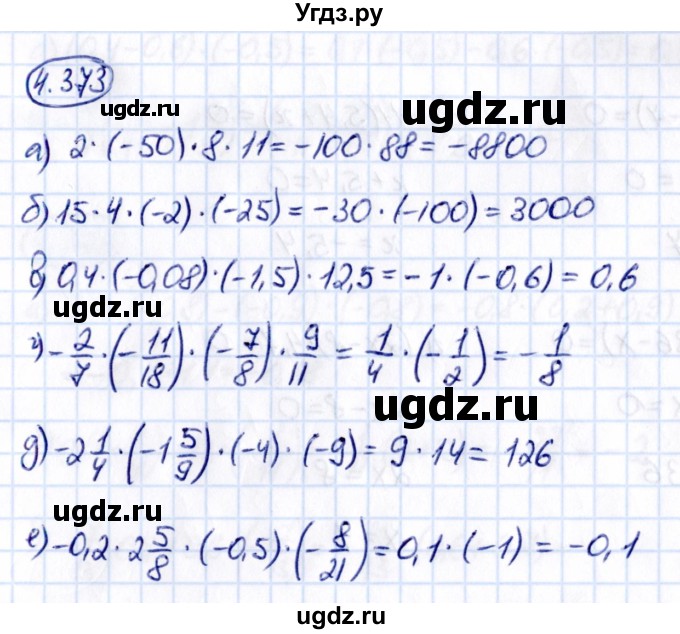 Угдз.ру
4.373
ugdz.ru
ugdz.ru
а) 2·(-50)·8·11=-100·88=-8800
ugdz.ru
б) 15·4·(-2)·(-25)=-30·(-100)=3000
в) 0,4·(-0,08)·(-1,5)·12,5=-1·(-0,6)=0,6
г) -2/7·(-11/18)·(-7/8)·9/11=1/4·(-1/2)=-1/8
ugdz.ru
ugdz.ru
д) -2 1/4·(-1 5/9)·(-4)·(-9)=9·14=126
ugdz.ru
е) -0,2·2 5/8·(-0,5)·(-8/21)=0,1·(-1)=-0,1
ugdz.ru
ugdz.ru